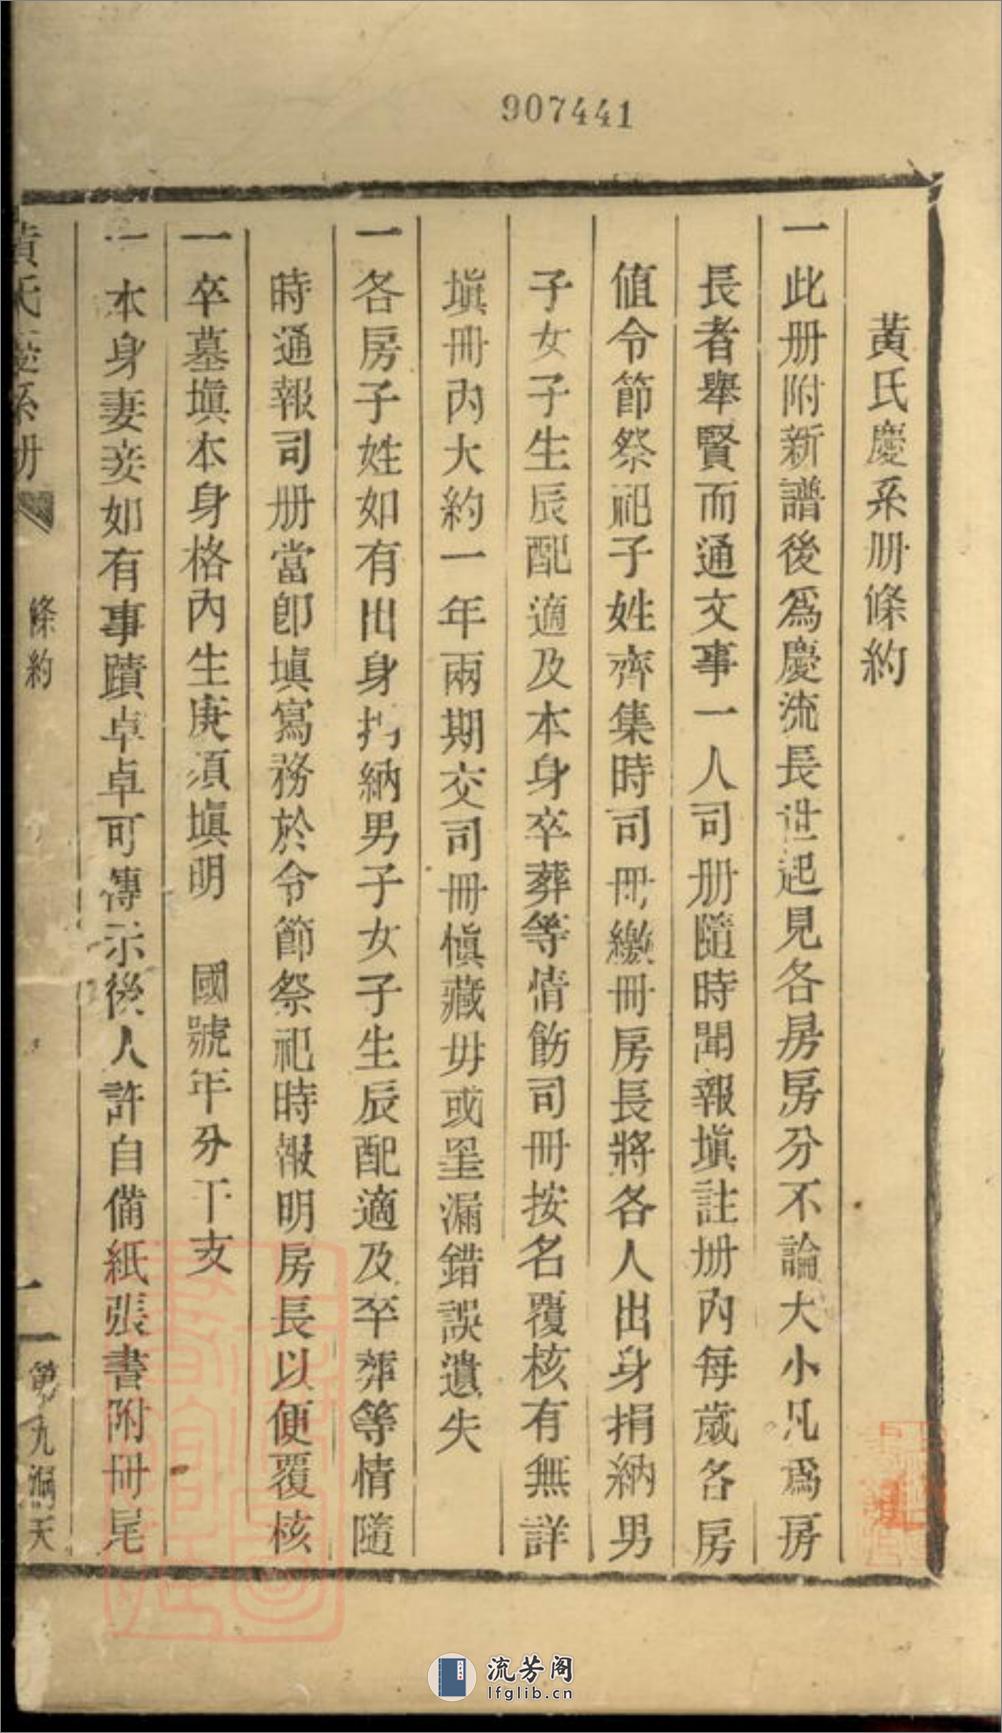 907441
黃氏慶系册條約
一此册附新譜後爲慶流長世起見各房房分不論大小凡爲房
長者舉賢而通文事一人司册隨時聞報塡註册內每歲各房
值令節祭祀子姓齊集時司冊繳冊房長將各人出身捐納男
子女子生辰配適及本身卒葬等情飭司冊按名覆核有無詳
塡冊內大約一年兩期交司冊愼藏毋或罣漏錯誤遺失
一各房子姓如有出身捐納男子女子生辰配適及卒葬等情隨
時通報司册當卽塡寫務於令節祭祀時報明房長以便覆核
一卒墓塡本身格內生庚須塡明　國號年分干支
一本身妻妾如有事蹟卓卓可傳示後人許自備紙張書附冊尾
黃氏慶系册
條約
一
第九洞天
流芳阁
lfglib.cn